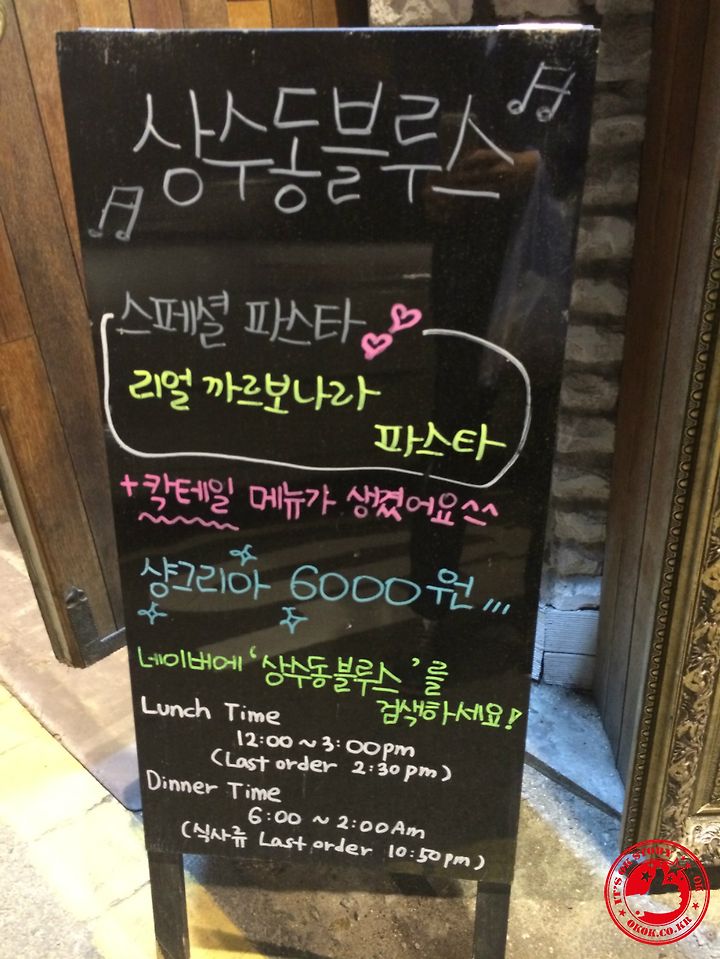 상수동블루스
스페셜 파스타
리얼 까르보나라
파스타
+칵테일 메뉴가 생겼어요^^
샹그리아 6000원,,,
네이버에 '상수동블루스'를
검색하세요!
Lunch Time
12:00 ~ 3:00pm
(Last order 2:30pm)
Dinner Time
6:00 ~ 2:00Am
(식사류 Last order 10:50pm)
OKOK.CO.KR